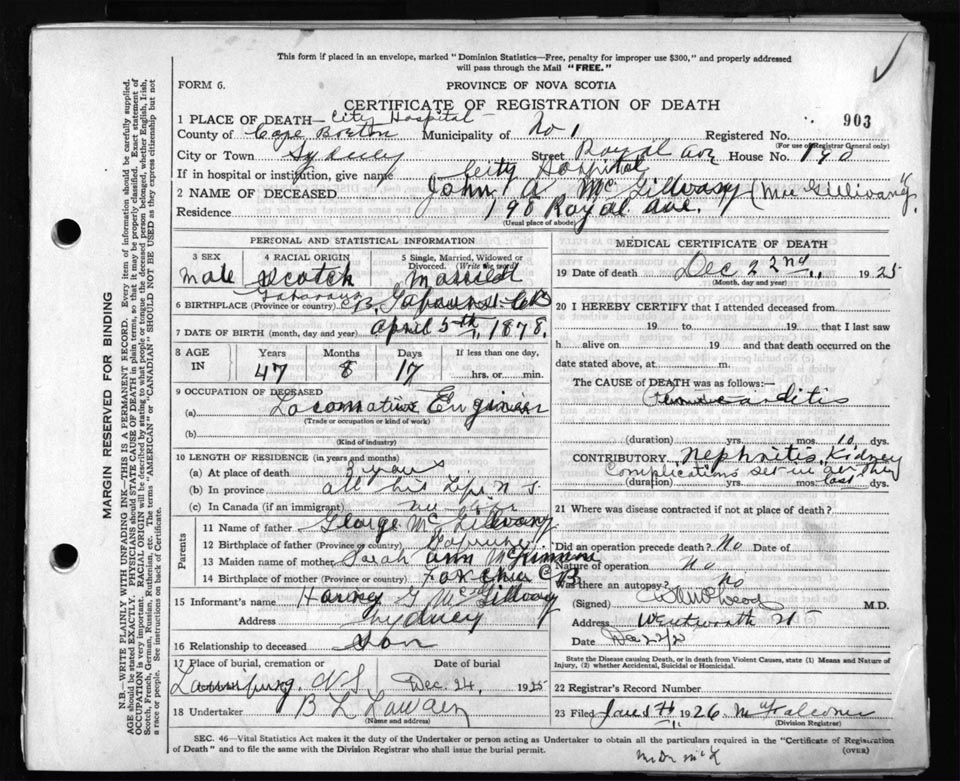 This form if placed in an envelope, marked "Dominion Statistics—Free, penalty for improper use $300," and properly addressed
will pass through the Mail "FREE."
FORM 6.
PROVINCE OF NOVA SCOTIA
CERTIFICATE OF REGISTRATION OF DEATH
1 PLACE OF DEATH— City Hospital
903
County of Cape Breton Municipality of No 1 Registered No.
(For use of Registrar General only)
City or Town Sydney Street Royal Ave House No. 190
If in hospital or institution, give name City Hospital
2 NAME OF DECEASED John A McGillvary
Residence 198 Royal ave.
(Usual place of abode)
PERSONAL AND STATISTICAL INFORMATION
3 SEX
4 RACIAL ORIGIN
5 Single, Married, Widowed or Divorced. (Write the word)
Male Scotch Married
6 BIRTHPLACE (Province or country) C.B. Gabarus C B
7 DATE OF BIRTH (month, day and year) April 5th, 1878.
8 AGE IN
Years Months Days If less than one day,
47 8 17 hrs. or min.
9 OCCUPATION OF DECEASED
(a) Locomative Enginier
(Trade or occupation or kind of work)
(b)
(Kind of industry)
10 LENGTH OF RESIDENCE (in years and months)
(a) At place of death 3 years
(b) In province all his Life N S
(c) In Canada (if an immigrant)
Parents
11 Name of father George McGillvary
12 Birthplace of father (Province or country)
13 Maiden name of mother Sarah Ann McKinnon
14 Birthplace of mother (Province or country) C B
15 Informant's name Harvey G McGillvary
Address Sydney
16 Relationship to deceased Son
17 Place of burial, cremation or Date of burial
Louisburg, N S Dec. 24, 1925
18 Undertaker B L
(Name and address)
MEDICAL CERTIFICATE OF DEATH
19 Date of death Dec 22nd 1925
(Month, day and year)
20 I HEREBY CERTIFY that I attended deceased from
19 to 19 that I last saw
h alive on 19 and that death occurred on
date stated above, at m.
The CAUSE of DEATH was as follows:—
(duration) yrs. mos. 10 dys.
CONTRIBUTORY Nephritis, Kidney
Complications set in
(duration) yrs. mos. last dys.
21 Where was disease contracted if not at place of death?
Did an operation precede death? No Date of
Nature of operation No
Was there an autopsy? No
(Signed) M.D.
Address Wentworth St
Date Dec 22/25
State the Disease causing Death, or in death from Violent Causes, state (1) Means and Nature of Injury, (2) whether Accidental, Suicidal or Homicidal.
22 Registrar's Record Number
23 Filed 1926
(Division Registrar)
SEC. 46—Vital Statistics Act makes it the duty of the Undertaker or person acting as Undertaker to obtain all the particulars required in the "Certificate of Registration
of Death" and to file the same with the Division Registrar who shall issue the burial permit. (OVER)
MARGIN RESERVED FOR BINDING
N.B.—WRITE PLAINLY WITH UNFADING INK—THIS IS A PERMANENT RECORD. Every item of information should be carefully supplied.
AGE should be stated EXACTLY. PHYSICIANS should STATE CAUSE OF DEATH in plain terms, so that it may be properly classified. Exact statement of
OCCUPATION is very important. RACIAL ORIGIN will be described by stating to what people or tongue the deceased person belonged, whether English, Irish,
Scotch, French, German, Russian, Ruthenian, etc. The terms "AMERICAN" or "CANADIAN" SHOULD NOT BE USED as they express citizenship but not
a race or people. See instructions on back of Certificate.